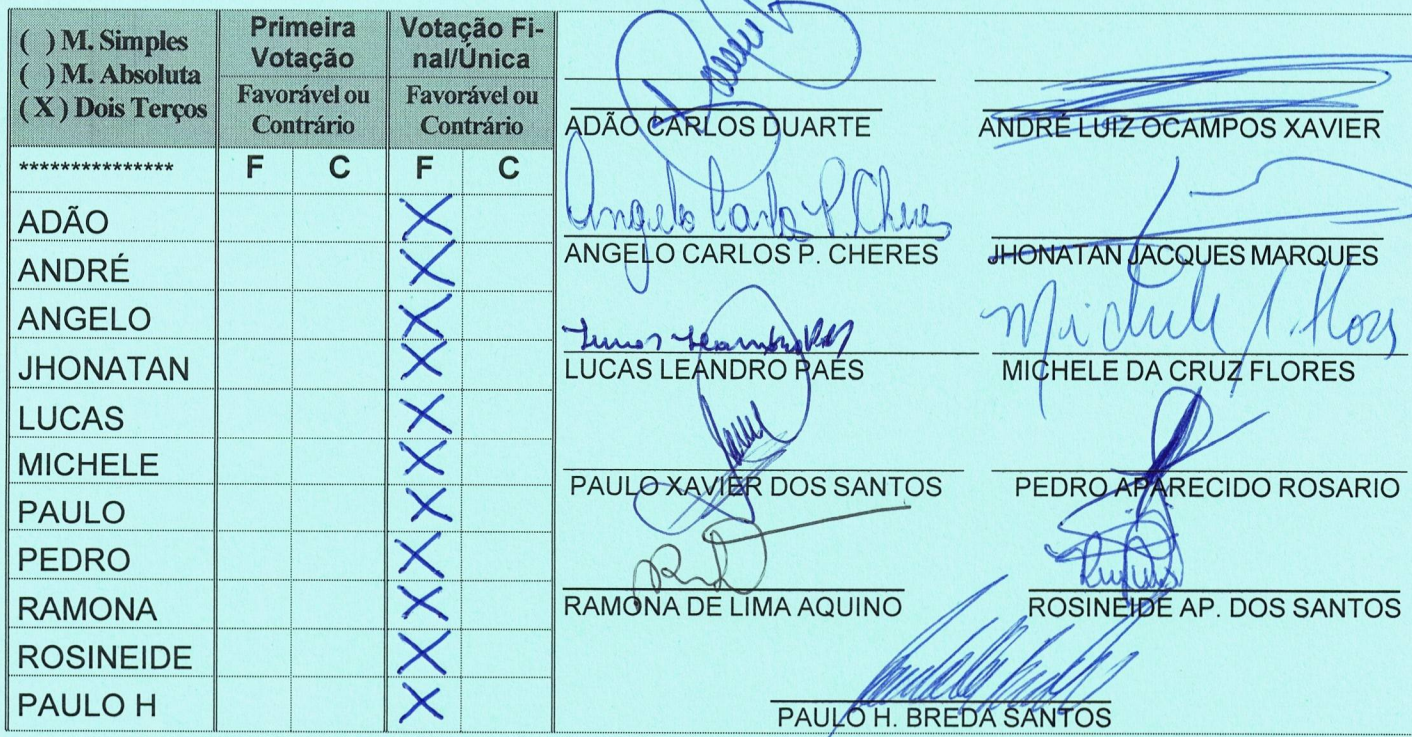 ( ) M. Simples
( ) M. Absoluta
( X ) Dois Terços
Primeira
Votação
Favorável ou
Contrário
Votação Fi-
nal/Única
Favorável ou
Contrário
*************** F C F C
ADÃO X
ANDRÉ X
ANGELO X
JHONATAN X
LUCAS X
MICHELE X
PAULO X
PEDRO X
RAMONA X
ROSINEIDE X
PAULO H X
ADÃO CARLOS DUARTE
ANDRÉ LUIZ OCAMPOS XAVIER
Angelo Carlos P. Cheres
ANGELO CARLOS P. CHERES
JHONATAN JACQUES MARQUES
LUCAS LEANDRO PAES
Michele
MICHELE DA CRUZ FLORES
PAULO XAVIER DOS SANTOS
PEDRO APARECIDO ROSARIO
RAMONA DE LIMA AQUINO
ROSINEIDE AP. DOS SANTOS
PAULO H. BREDA SANTOS